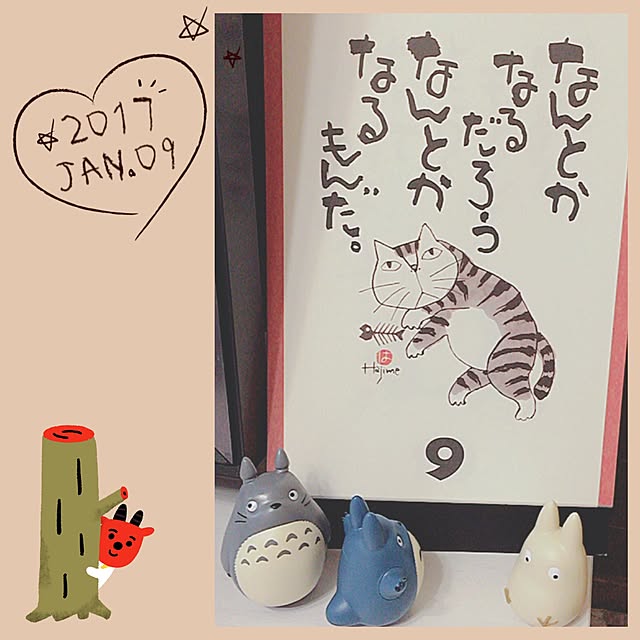 2017
JAN.09
なんとか
なる
だろう
なんとか
なる
もんだ。
は
Hajime
9